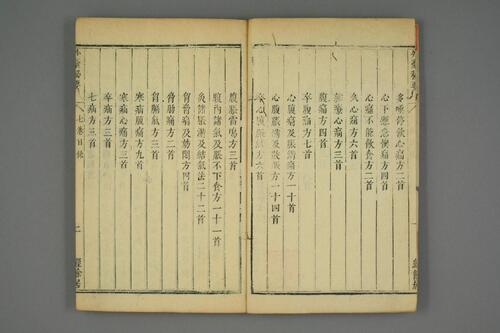 多唾停飲心痛方二首
心下懸急懊痛方四首
心痛不能飲食方二首
久心痛方六首
雜療心痛方三首
腹痛方四首
卒腹痛方七首
心腹痛及脹滿痛方一十首
心腹脹滿及鼓脹方一十四首
卒心腹脹滿方六首
腹脹雷鳴方三首
腹內諸氣及脹不下食方一十一首
灸諸脹滿及結氣法二十二首
胷脅痛及妨悶方四首
脅肋痛方二首
胷膈氣方三首
寒疝腹痛方九首
寒疝心痛方三首
卒疝方三首
七疝方三首
七卷目錄
經餘居